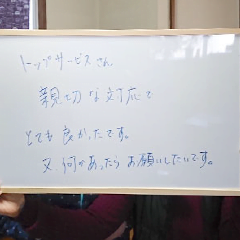 トップサービスさん
親切な対応で
とても良かったです。
又、何かあったらお願いしたいです。